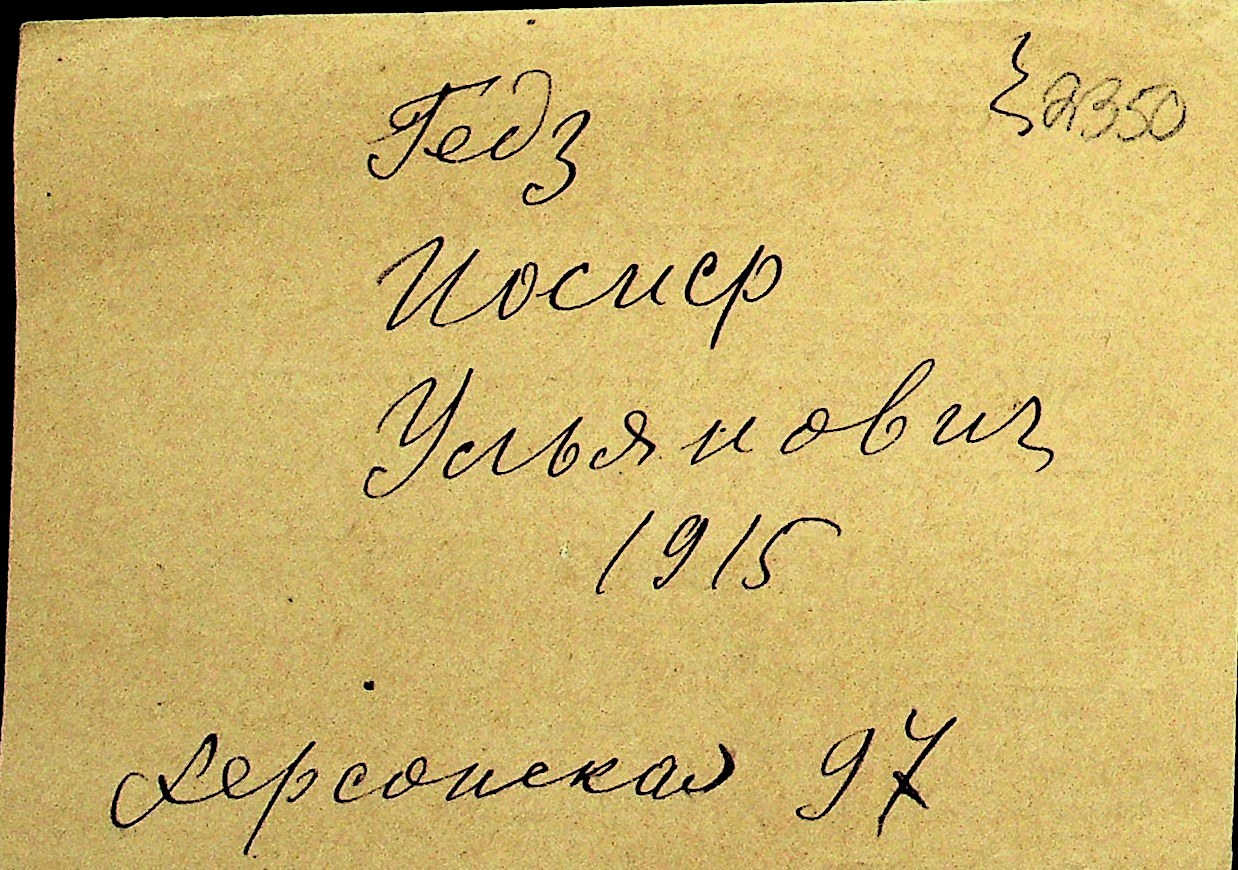 Гедз
2350
Иосиф
Ульянович
1915
Херсонская 97